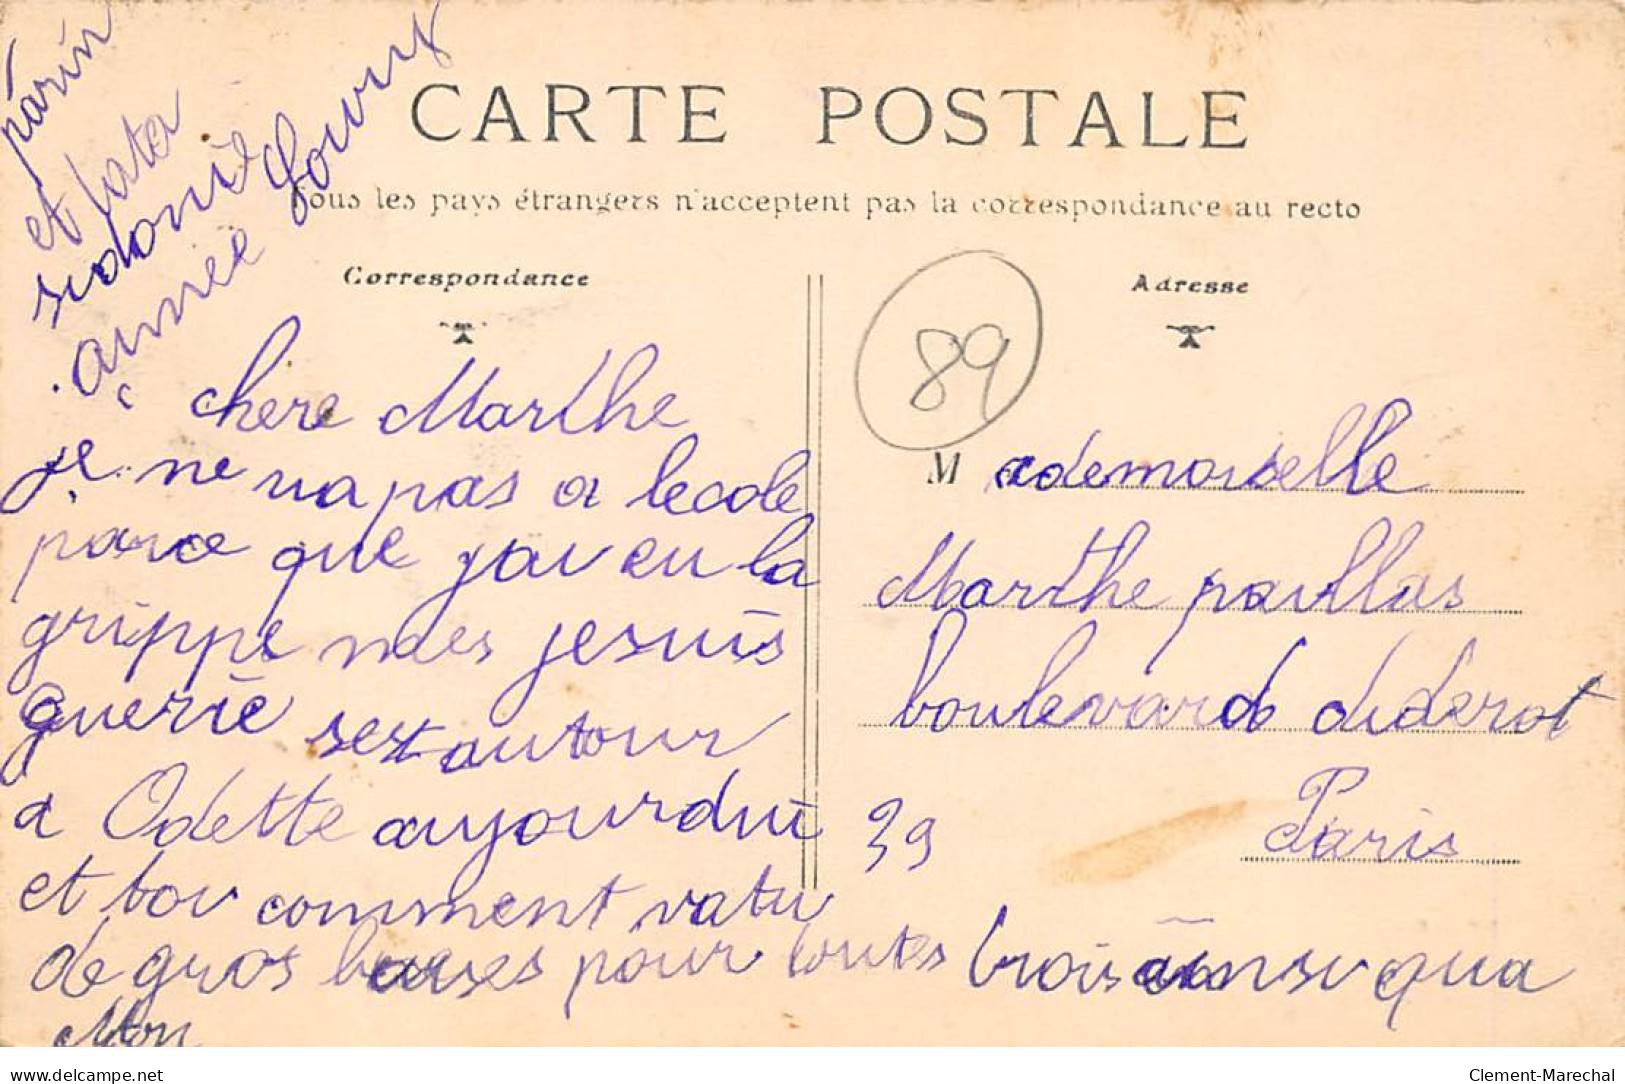 parin
et tata
sidonie
aimée Lour
CARTE POSTALE
Tous les pays étrangers n'acceptent pas la correspondance au recto
Correspondance
Adresse
89
chere Marthe
je ne va pas a lecole
parce que jai eu la
grippe mes je suis
guerie sest au tour
a Odette aujourdui
et toi comment vatu
de gros baises pour toutes trois ainsi qua
Mon
Mademoiselle
Marthe paillas
boulevard diderot
39 Paris
delcampe.net
Clement-Marechal